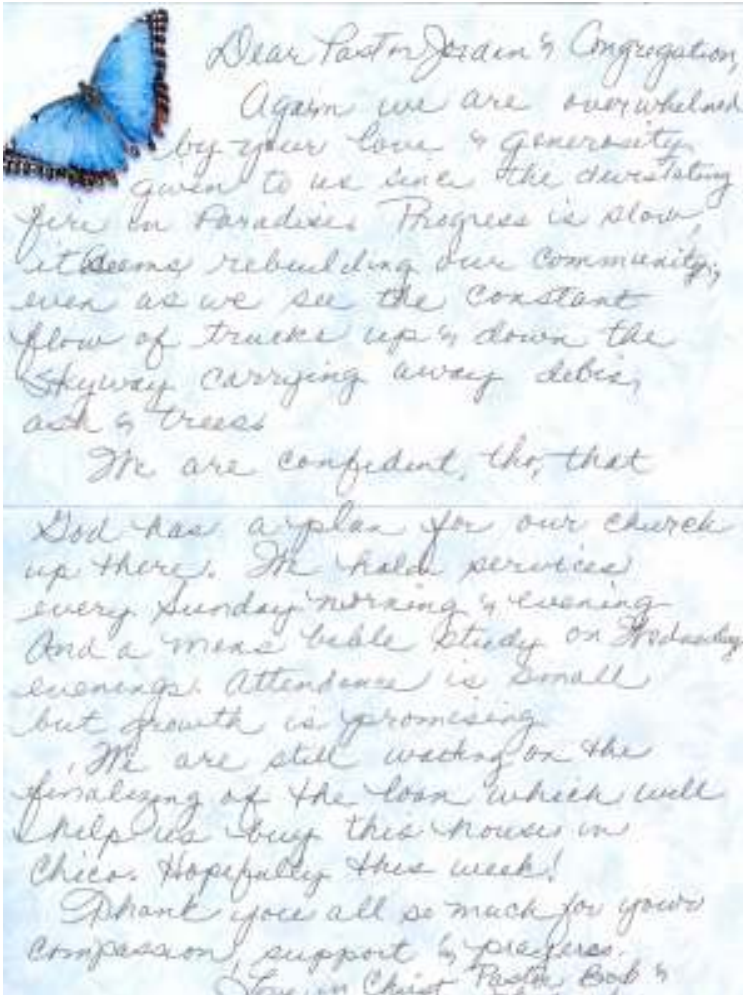 Dear Pastor Jordan & Congregation,
Again we are overwhelmed
by your love & generosity
given to us since the devistating
fire in Paradise. Progress is slow,
it seems rebuilding our community,
even as we see the constant
flow of trucks up & down the
Skyway carrying away debis,
ash & trees.
We are confident, tho, that
God has a plan for our church
up there. We hold services
every Sunday morning & evening
And a mens bible study on Wednesday
evenings. Attendance is small
but growth is promising
We are still waiting on the
finalizing of the loan which will
help us buy this house in
Chico. Hopefully this week!
Thank you all so much for your
compassion, support & prayers.
Love in Christ Pastor Bob &